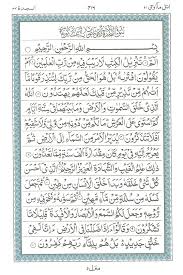 اتل ما اوحی ۲۱
بِسْمِ اللّٰهِ الرَّحْمٰنِ الرَّحِيْمِ
الٓمّٓ تَنْزِيْلُ الْكِتٰبِ لَا رَيْبَ فِيْهِ مِنْ رَّبِّ الْعٰلَمِيْنَ اَمْ
يَقُوْلُوْنَ افْتَرٰىهُ بَلْ هُوَ الْحَقُّ مِنْ رَّبِّكَ لِتُنْذِرَ قَوْمًا مَّآ
اَتٰىهُمْ مِّنْ نَّذِيْرٍ مِّنْ قَبْلِكَ لَعَلَّهُمْ يَهْتَدُوْنَ اَللّٰهُ
الَّذِيْ خَلَقَ السَّمٰوٰتِ وَالْاَرْضَ وَمَا بَيْنَهُمَا فِيْ سِتَّةِ اَيَّامٍ
ثُمَّ اسْتَوٰى عَلَى الْعَرْشِ مَا لَكُمْ مِّنْ دُوْنِهٖ مِنْ وَّلِيٍّ وَّلَا
شَفِيْعٍ اَفَلَا تَتَذَكَّرُوْنَ يُدَبِّرُ الْاَمْرَ مِنَ السَّمَآءِ اِلَى الْاَرْضِ ثُمَّ
يَعْرُجُ اِلَيْهِ فِيْ يَوْمٍ كَانَ مِقْدَارُهٗٓ اَلْفَ سَنَةٍ مِّمَّا تَعُدُّوْنَ
ذٰلِكَ عٰلِمُ الْغَيْبِ وَالشَّهَادَةِ الْعَزِيْزُ الرَّحِيْمُ الَّذِيْٓ اَحْسَنَ
كُلَّ شَيْءٍ خَلَقَهٗ وَبَدَاَ خَلْقَ الْاِنْسَانِ مِنْ طِيْنٍ ثُمَّ جَعَلَ
نَسْلَهٗ مِنْ سُلٰلَةٍ مِّنْ مَّآءٍ مَّهِيْنٍ ثُمَّ سَوّٰىهُ وَنَفَخَ فِيْهِ مِنْ
رُّوْحِهٖ وَجَعَلَ لَكُمُ السَّمْعَ وَالْاَبْصَارَ وَالْاَفْـِٕدَةَ قَلِيْلًا مَّا
تَشْكُرُوْنَ وَقَالُوْٓا ءَاِذَا ضَلَلْنَا فِي الْاَرْضِ ءَاِنَّا لَفِيْ
خَلْقٍ جَدِيْدٍ بَلْ هُمْ بِلِقَآءِ رَبِّهِمْ كٰفِرُوْنَ
منزل ٥